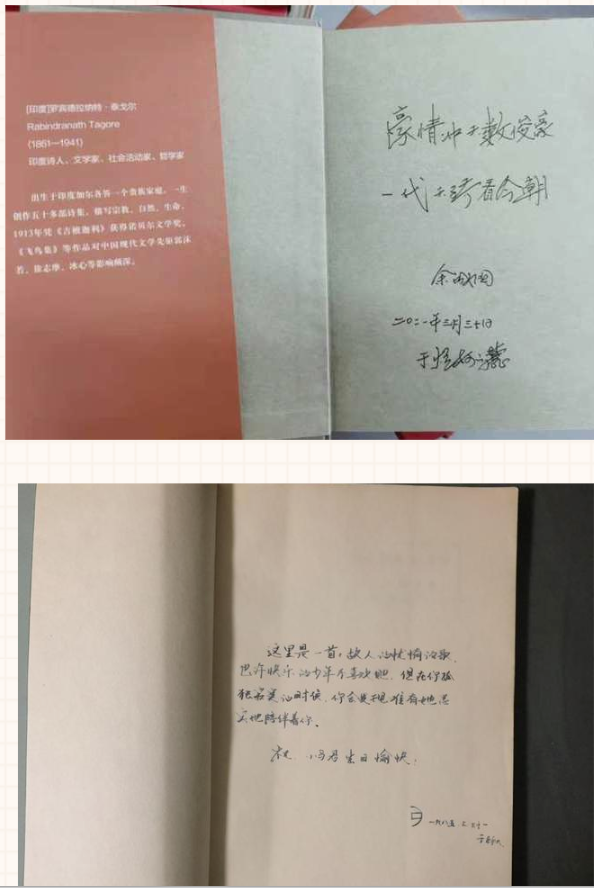 [印度]罗宾德拉纳特·泰戈尔
Rabindranath Tagore
(1861—1941)
印度诗人、文学家、社会活动家、哲学家
出生于印度加尔各答一个贵族家庭。一生
创作五十多部诗集，描写宗教、自然、生命，
1913年凭《吉檀迦利》获得诺贝尔文学奖。
《飞鸟集》等作品对中国现代文学先驱郭沫
若、徐志摩、冰心等影响颇深。
豪情冲天数俊豪
一代天骄看今朝
二〇二一年三月三十日
于
这里是一首，故人的忧愁的歌，
也许快乐的少年不喜欢她，但在你孤
独寂寞的时候，你会发现唯有她忠
实地陪伴着你。
祝 冯君生日愉快！
一九八五.